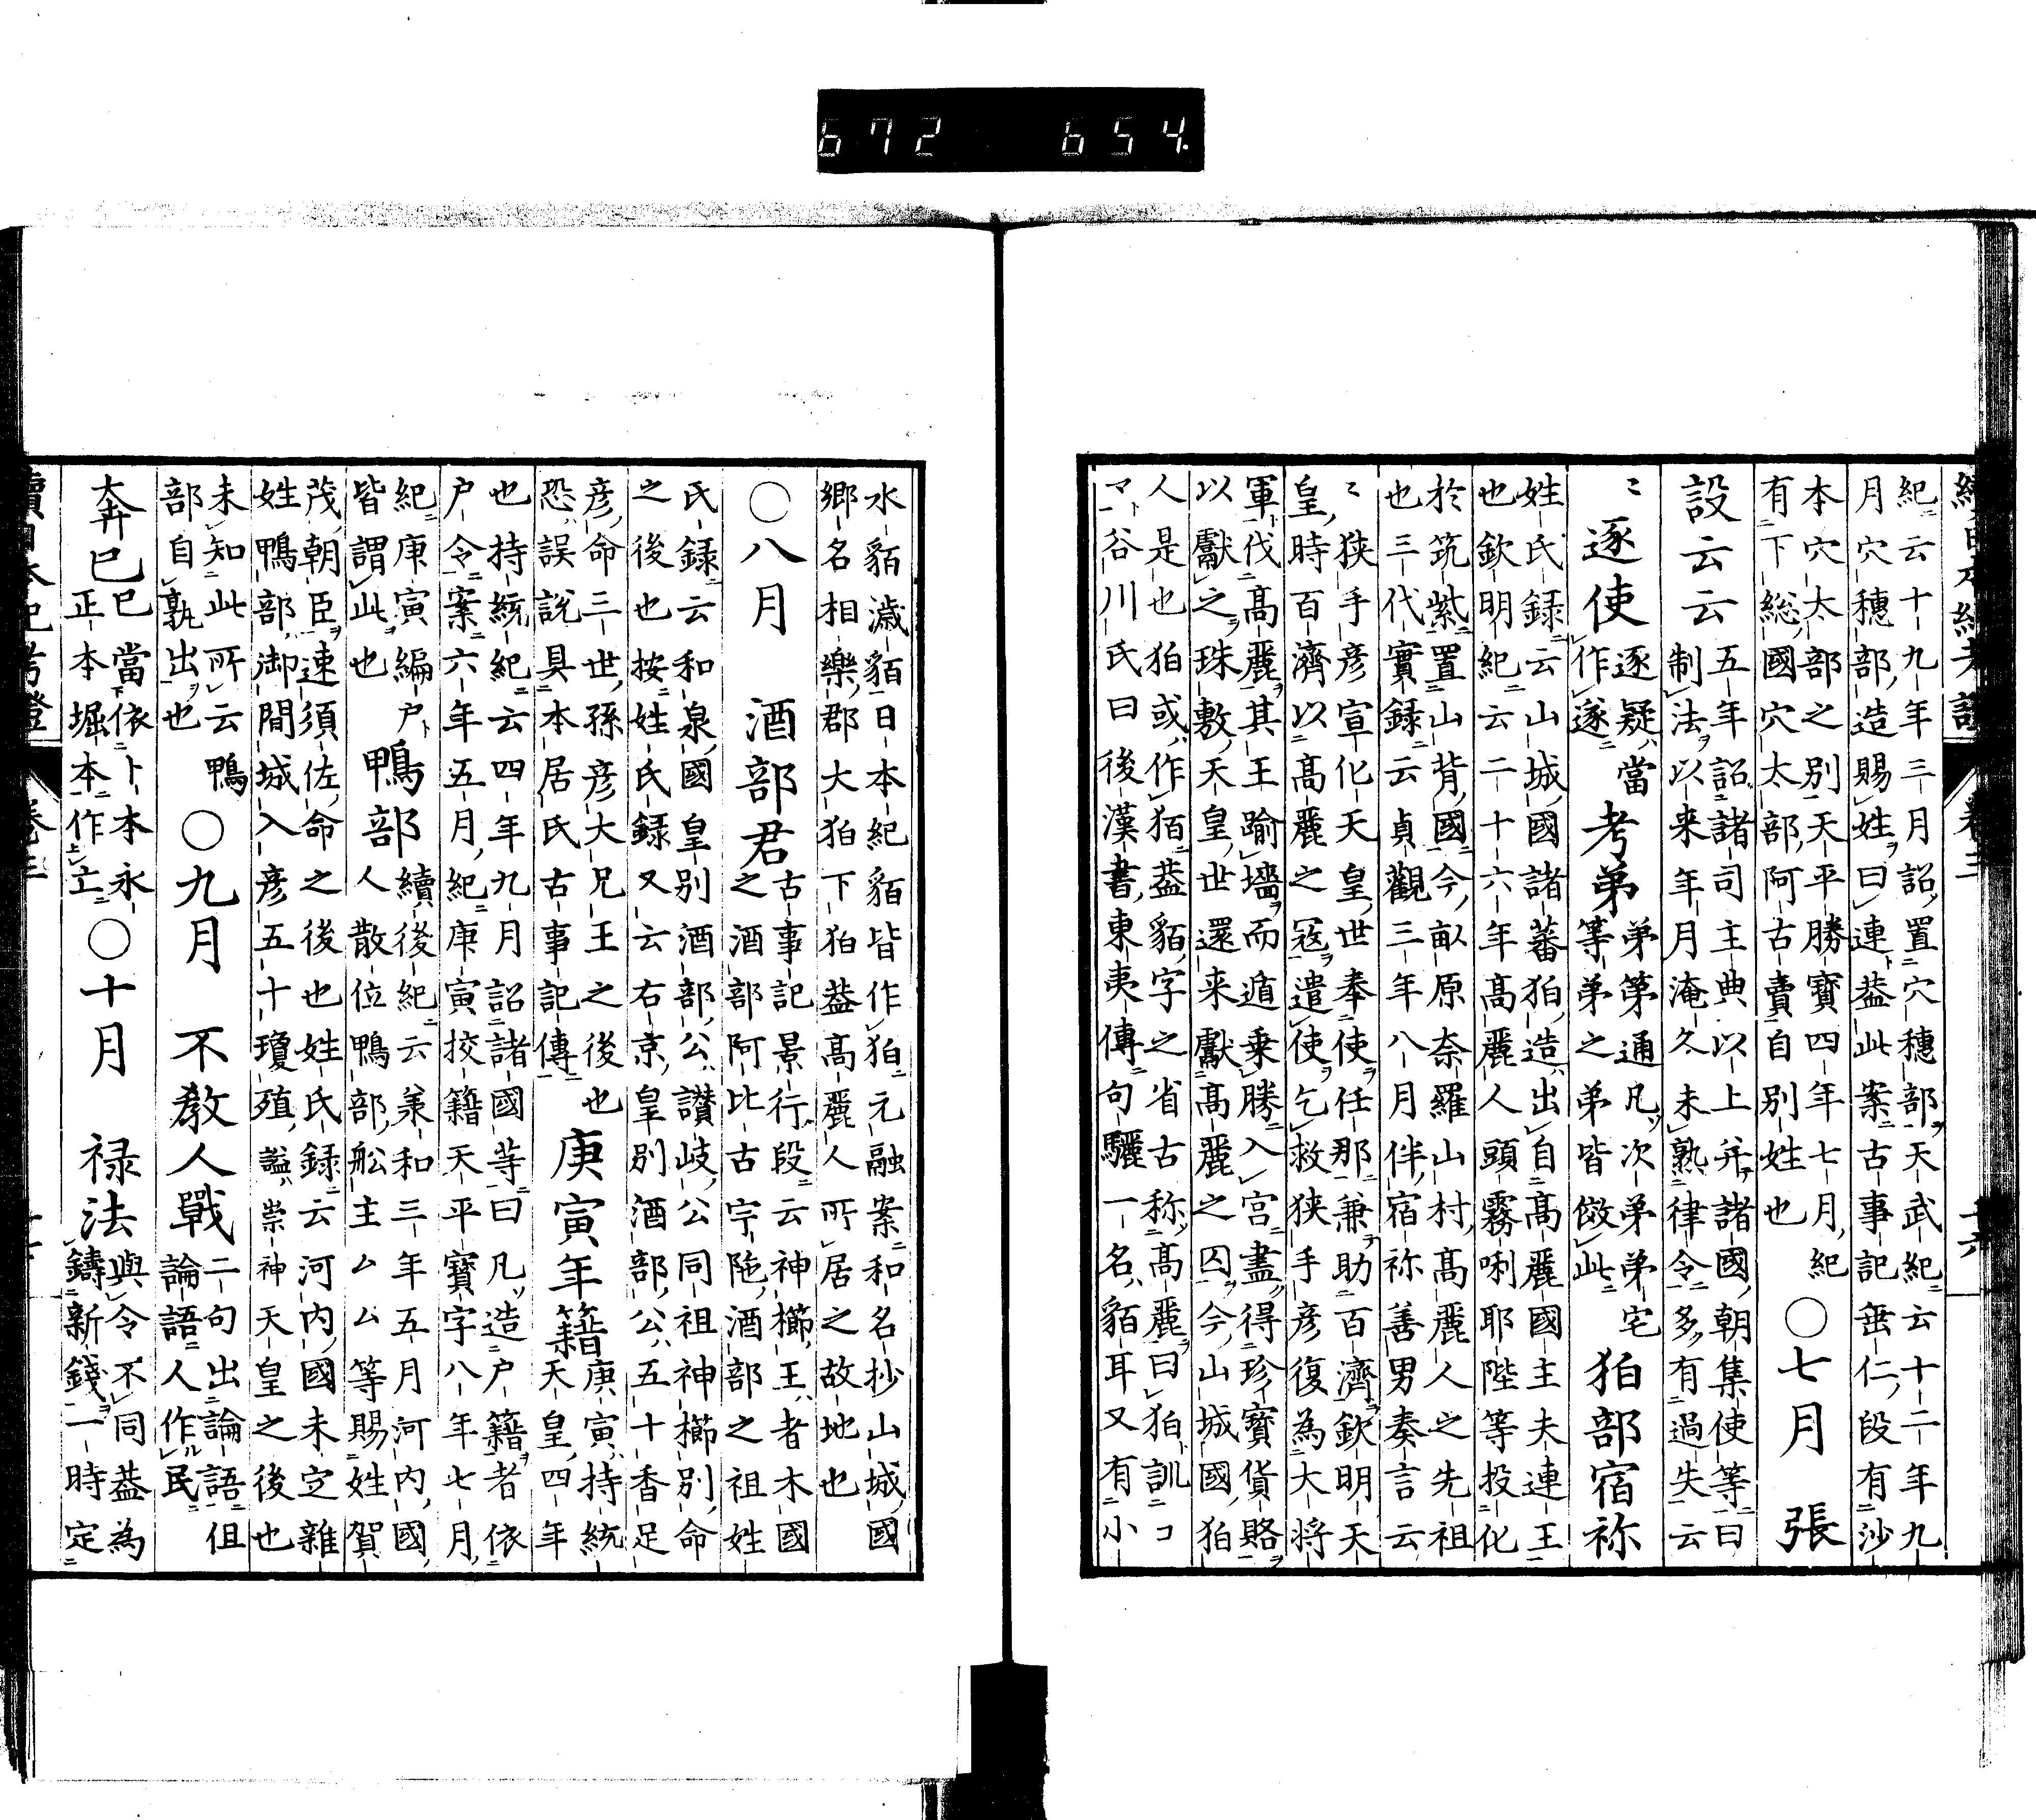 672 654.
紀云十九年三月詔置穴穗部天武紀云十二年九
月穴穗部造賜姓曰連葢此案古事記垂仁段有沙
本穴太部之別天平勝寶四年七月紀
有下総國穴太部阿古賣自別姓也
○七月 張
設云云
五年詔諸司主典以上并諸國朝集使等曰
制法以来年月淹久未熟律令多有過失云
〻
逐使
逐疑當
作遂
考弟
弟第通凡次弟弟宅
等弟之弟皆倣此
狛部宿祢
姓氏録云山城國諸蕃狛造出自高麗國主夫連王
也欽明紀云二十六年高麗人頭霧唎耶陛等投化
於筑紫置山背國今畝原奈羅山村高麗人之先祖
也三代實録云貞觀三年八月伴宿祢善男奏言云
〻狭手彦宣化天皇世奉使任那兼助百濟欽明天
皇時百濟以高麗之寇遣使乞救狭手彦復為大将
軍伐高麗其王踰墻而遁乗勝入宮盡得珍寶貨賂
以獻之珠敷天皇世還来獻高麗之囚今山城國狛
人是也狛或作狛葢貊字之省古称高麗曰狛訓コ
マ谷川氏曰後漢書東夷傳句驪一名貊耳又有小
水貊濊貊日本紀貊皆作狛元融案和名抄山城國
郷名相樂郡大狛下狛葢高麗人所居之故地也
○八月 酒部君
古事記景行段云神櫛王者木國
之酒部阿比古宇陁酒部之祖姓
氏録云和泉國皇別酒部公讃岐公同祖神櫛別命
之後也按姓氏録又云右京皇別酒部公五十香足
彦命三世孫彦大兄王之後也
恐誤説具本居氏古事記傳
庚寅年籍
庚寅持統
天皇四年
也持統紀云四年九月詔諸國等曰凡造户籍者依
户令案六年五月紀庚寅挍籍天平寶字八年七月
紀庚寅編户
皆謂此也
鴨部
續後紀云兼和三年五月河内國
人散位鴨部舩主ムム等賜姓賀
茂朝臣速須佐命之後也姓氏録云河内國未定雜
姓鴨部御間城入彦五十瓊殖謚崇神天皇之後也
未知此所云鴨
部自孰出也
○九月 不教人戰
二句出論語伹
論語人作民
奔巳
巳當依卜本永
正本堀本作亡
○十月 禄法
與令不同葢為
鑄新錢一時定